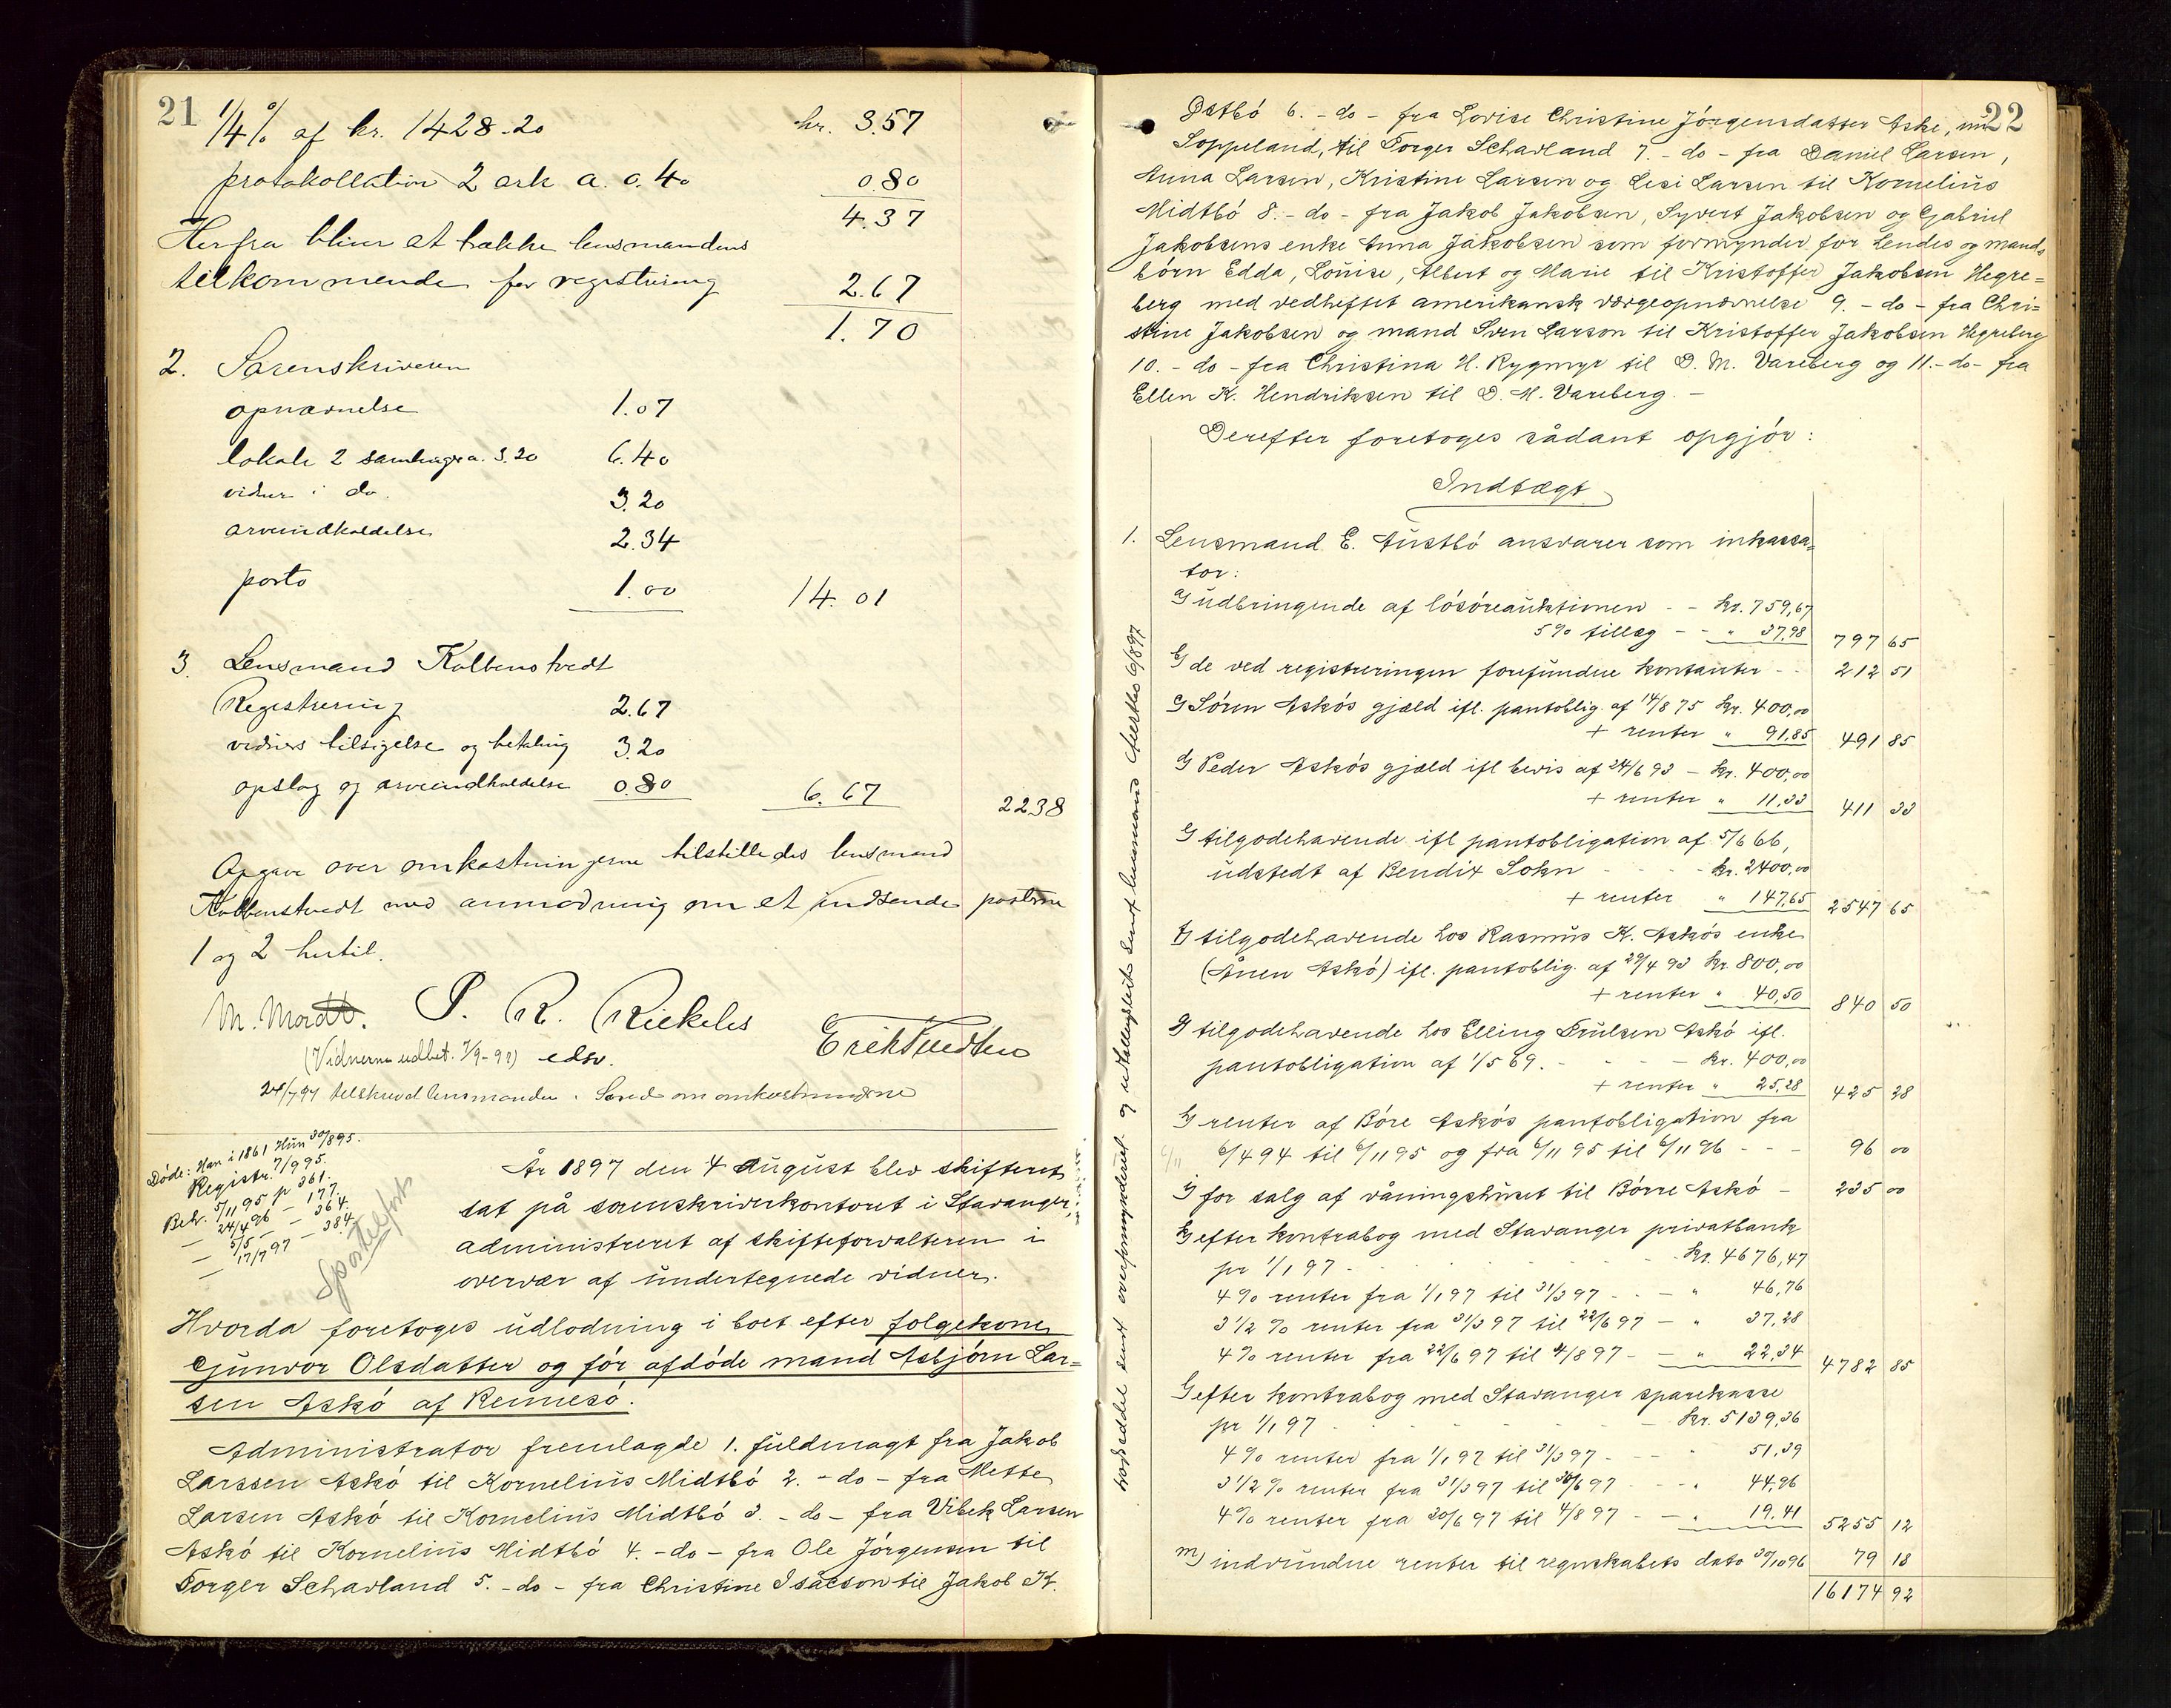 21
1/4 % af kr. 1428.20 kr. 3.57
protokollation 2 ark a. 0.40 0.80
4.37
Herfra bliver at trække lensmandens
tilkommende for registrering 2.67
1.70
2. Sorenskriveren
opnævnelse 1.07
lokale 2 samlinger a. 3.20 6.40
vidner i do. 3.20
arveindkaldelse 2.34
porto 1.00 14.01
3. Lensmand Kolbenstvedt
Registrering 2.67
vidners tilsigelse og betaling 3.20
opslag og arveindkaldelse 0.80 6.67 22.38
Opgave over omkostningerne tilstilledes lensmand
Kolbenstvedt med anmodning om at indsende posterne
1 og 2 hertil.
M. Mordt. P. R. Rickeles
(Vidnerne udbet. 7/9-97) edsv.
24/7 97 tilskrevd lensmanden i Soved om omkostningerne
Døde: Han i 1861 Hun 30/8 95.
Registr. 7/9 95.
Behr. 5/11 95 p 361.
— 24/4 96 — 177.
— 5/5 — — 364.
— 17/7 97 — 384.
År 1897 den 4 August blev skifteret
sat på sorenskriverkontoret i Stavanger,
administreret af skifteforvalteren i
overvær af undertegnede vidner.
Hvorda foretoges udlodning i boet efter følgekone
Gunvor Olsdatter og før afdøde mand Asbjørn Lar=
sen Askø af Rennesø.
Administrator fremlagde 1. fuldmagt fra Jakob
Larssen Askø til Kornelius Midtbø 2. - do - fra Mette
Larsen Askø til Kornelius Midtbø 3. - do - fra Vibek Larsen
Askø til Kornelius Midtbø 4. - do - fra Ole Jørgensen til
Torger Schavland 5. - do - fra Christine Isacson til Jakob K.
22
Østbø 6. - do - fra Lovise Christine Jørgensdatter Aske, nu
Soppeland, til Torger Schavland 7. - do - fra Daniel Larsen,
Anna Larsen, Kristine Larsen og Lesi Larsen til Kornelius
Midtbø 8. - do - fra Jakob Jakobsen, Syvert Jakobsen og Gabriel
Jakobsens enke Anna Jakobsen som formynder for hendes og mands
børn Edda, Louise, Albert og Marie til Kristoffer Jakobsen Hegre=
berg med vedheftet amerikansk værgeopnævnelse 9. - do - fra Chri=
stine Jakobsen og mand Sven Larson til Kristoffer Jakobsen Hegreberg
10. - do - fra Christina H. Rygmyr til D. M. Vareberg og 11. - do - fra
Ellen K. Hendriksen til D. M. Vareberg. -
Derefter foretoges sådant opgjør:
Indtægt
1. Lensmand E. Austbø ansvarer som inkassa=
tor:
a) udbringende af løsøreauktionen - - kr. 759,67
5% tillæg - - " 37,98 797 65
b) de ved registreringen forefundne kontanter - - 212 51
c) Søren Askøs gjæld ifl. pantoblig. af 14/8 75 kr. 400,00
+ renter " 91,85 491 85
d) Peder Askøs gjæld ifl bevis af 24/6 93 - kr. 400,00
+ renter " 11,33 411 33
e) tilgodehavende ifl pantobligation af 5/6 66,
udstedt af Bendix Sokn - - - kr. 2400,00
+ renter " 147,65 2547 65
f) tilgodehavende hos Rasmus K. Askøs enke
(Ånen Askø) ifl. pantoblig. af 29/4 93 kr. 800,00
+ renter " 40,50 840 50
g) tilgodehavende hos Elling Trulsen Askø ifl.
pantobligation af 1/5 69. - - - kr. 400,00
+ renter " 25,28 425 28
h) renter af Børe Askøs pantobligation fra
6/4 94 til 6/11 95 og fra 6/11 95 til 6/11 96 - - - 96 00
i) for salg af våningshuset til Børre Askø - 235 00
k) efter kontrabog med Stavanger privatbank
pr 1/1 97 - - - kr. 4676,47
4% renter fra 1/1 97 til 31/3 97 - - - " 46,76
3 1/2 % renter fra 31/3 97 til 22/6 97 - " 37,28
4% renter fra 22/6 97 til 4/8 97 - - " 22,34 4782 85
l) efter kontrabog med Stavanger sparekasse
pr 1/1 97 - - - kr. 5139,36
4% renter fra 1/1 97 til 31/3 97 - - - " 51,39
3 1/2 % renter fra 31/3 97 til 30/6 97 - - - " 44,96
4% renter fra 30/6 97 til 4/8 97 - - " 19,41 5255 12
m) indvundne renter til regnskabets dato 30/10 96 79 18
16174 92